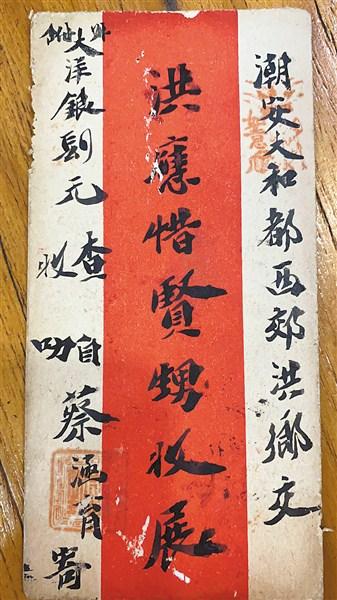 潮安大和都西郊洪鄉交
洪應惜賢甥收展
外附大洋銀 元 查收
自叻蔡涵育寄